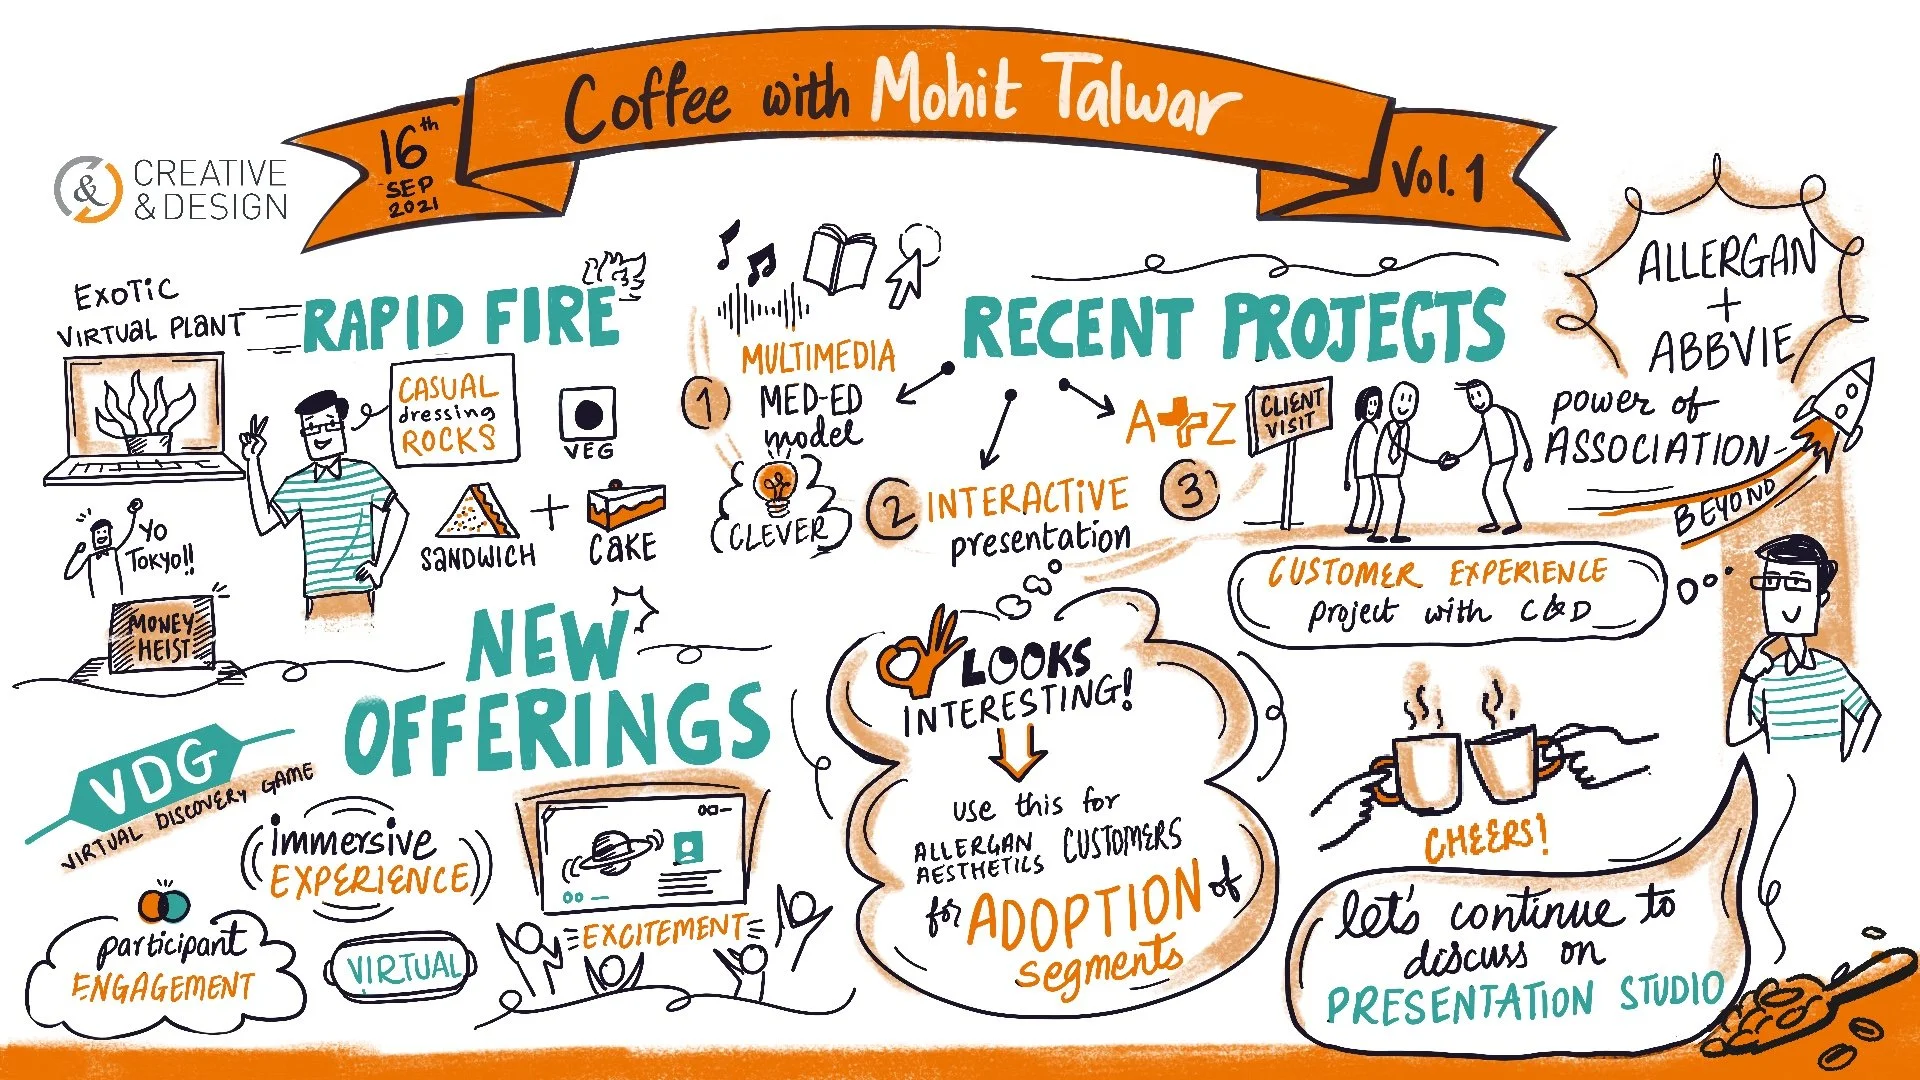 Coffee with Mohit Talwar
16th
SEP
2021
Vol.1
&
CREATIVE
& DESIGN
EXOTIC
VIRTUAL PLANT
RAPID FIRE
CASUAL
dressing
ROCKS
VEG
SANDWICH + CAKE
YO
TOKYO!!
MONEY
HEIST
RECENT PROJECTS
1
MULTIMEDIA
MED-ED
model
CLEVER
2
INTERACTIVE
presentation
3
A+Z
CLIENT
VISIT
ALLERGAN
+
ABBVIE
power of
ASSOCIATION
BEYOND
CUSTOMER EXPERIENCE
project with C&D
NEW
OFFERINGS
VDG
VIRTUAL DISCOVERY GAME
immersive
EXPERIENCE
participant
ENGAGEMENT
VIRTUAL
EXCITEMENT
LOOKS
INTERESTING!
use this for
ALLERGAN
AESTHETICS
CUSTOMERS
for ADOPTION of
segments
CHEERS!
let's continue to
discuss on
PRESENTATION STUDIO